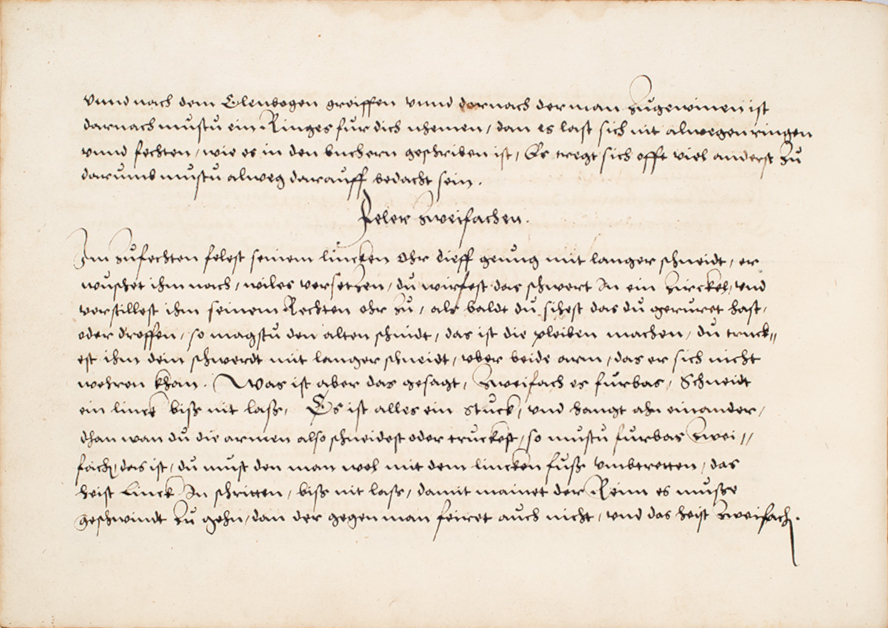 vnnd nach dem Elenbogen greiffen vnnd dernach der man zugewinen ist
darnach mustu ein Ringes fur dich nhemen, dan es last sich nit alwegen ringen
vnnd fechten, wie es in den buchern geschriben ist, Es tregt sich offt viel anderst zu
darumb mustu alweg darauff bedacht sein.
Feler zweifachen.
Im zufechten felest seinem lincken Ohr dieff genug mit langer schneidt, er
wuschet ihm nach, wil es versetzen, du wirfest das schwert In ein zirckel, vnd
verstillest ihm seinem Rechten Ohr zu, als baldt du sihest das du geruret hast,
oder droffen, so magstu den alten schnidt, das ist die pleiben machen, du truck=
est ihm dein schwerdt mit langer schneidt, vber beide arm, das er sich nicht
wehren khan. Was ist aber das gesagt, Zweifach es furbas, Schneidt
ein linck biss nit lass, Es ist alles ein stuck, vnd hangt ahn einander,
dhan wan du die armen also schneidest oder truckest, so mustu furbas zwei=
fach, das ist, du must den man wol mit dem lincken fuss vmbtretten, das
heist Linck In schritten, biss nit lass, damit mainet der Reim es musse
geschwindt zu gehn, dan der gegen man feiret auch nicht, vnd das heist zweifach.